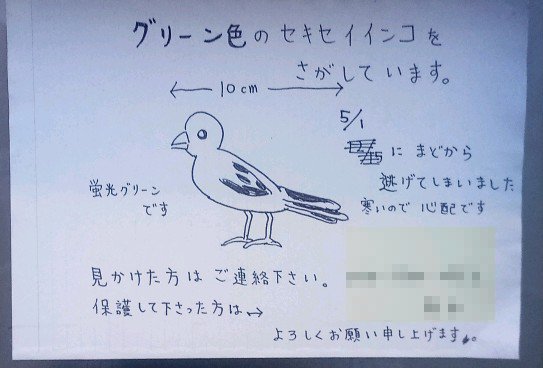 グリーン色のセキセイインコを
さがしています。
10cm
5/1
にまどから
逃げてしまいました
寒いので心配です
蛍光グリーン
です
見かけた方はご連絡下さい。
保護して下さった方は→
よろしくお願い申し上げます。